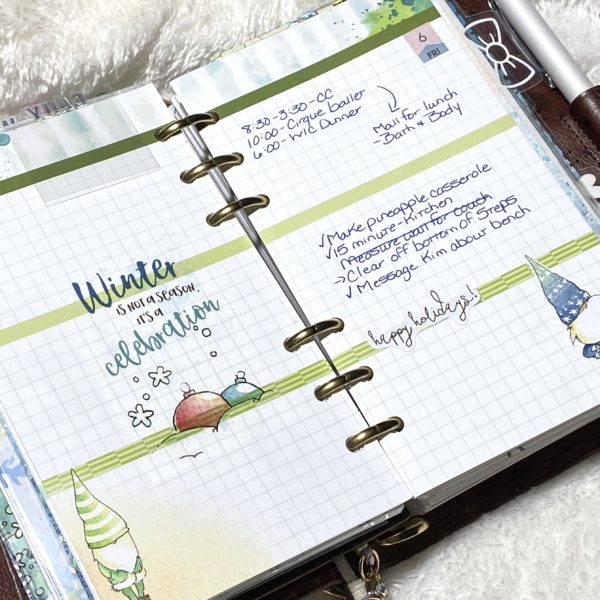 Winter
IS NOT A SEASON,
IT'S A
celebration
6
FRI
8:30-3:30-CC
10:00-Cirque ballet
6:00-WIC Dinner
Mall for lunch
-Bath & Body
✓Make pineapple casserole
✓15 minute-Kitchen
Measure wall for couch
→Clear off bottom of steps
✓Message Kim about bench
happy holidays!